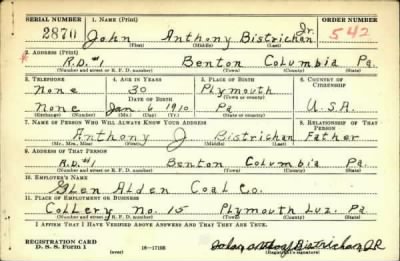 SERIAL NUMBER 1. NAME (Print) ORDER NUMBER
2870 John Anthony Bistrichan Jr. 542
(First) (Middle) (Last)
2. ADDRESS (Print)
R.D. #1 Benton Columbia Pa.
(Number and street or R. F. D. number) (Town) (County) (State)
3. TELEPHONE 4. AGE IN YEARS 5. PLACE OF BIRTH 6. COUNTRY OF CITIZENSHIP
None 30 Plymouth
DATE OF BIRTH (Town or county)
None Jan. 6 1910 Pa U.S.A.
(Exchange) (Number) (Mo.) (Day) (Yr.) (State or country)
7. NAME OF PERSON WHO WILL ALWAYS KNOW YOUR ADDRESS 8. RELATIONSHIP OF THAT PERSON
Anthony J Bistrichan Father
(Mr., Mrs., Miss) (First) (Middle) (Last)
9. ADDRESS OF THAT PERSON
R.D. #1 Benton Columbia Pa.
(Number and street or R. F. D. number) (Town) (County) (State)
10. EMPLOYER'S NAME
Glen Alden Coal Co.
11. PLACE OF EMPLOYMENT OR BUSINESS
Collery No. 15 Plymouth Luz. Pa.
(Number and street or R. F. D. number) (Town) (County) (State)
I AFFIRM THAT I HAVE VERIFIED ABOVE ANSWERS AND THAT THEY ARE TRUE.
REGISTRATION CARD
D. S. S. Form 1 (over) 16—17105 John Anthony Bistrichan JR
(Registrant's signature)